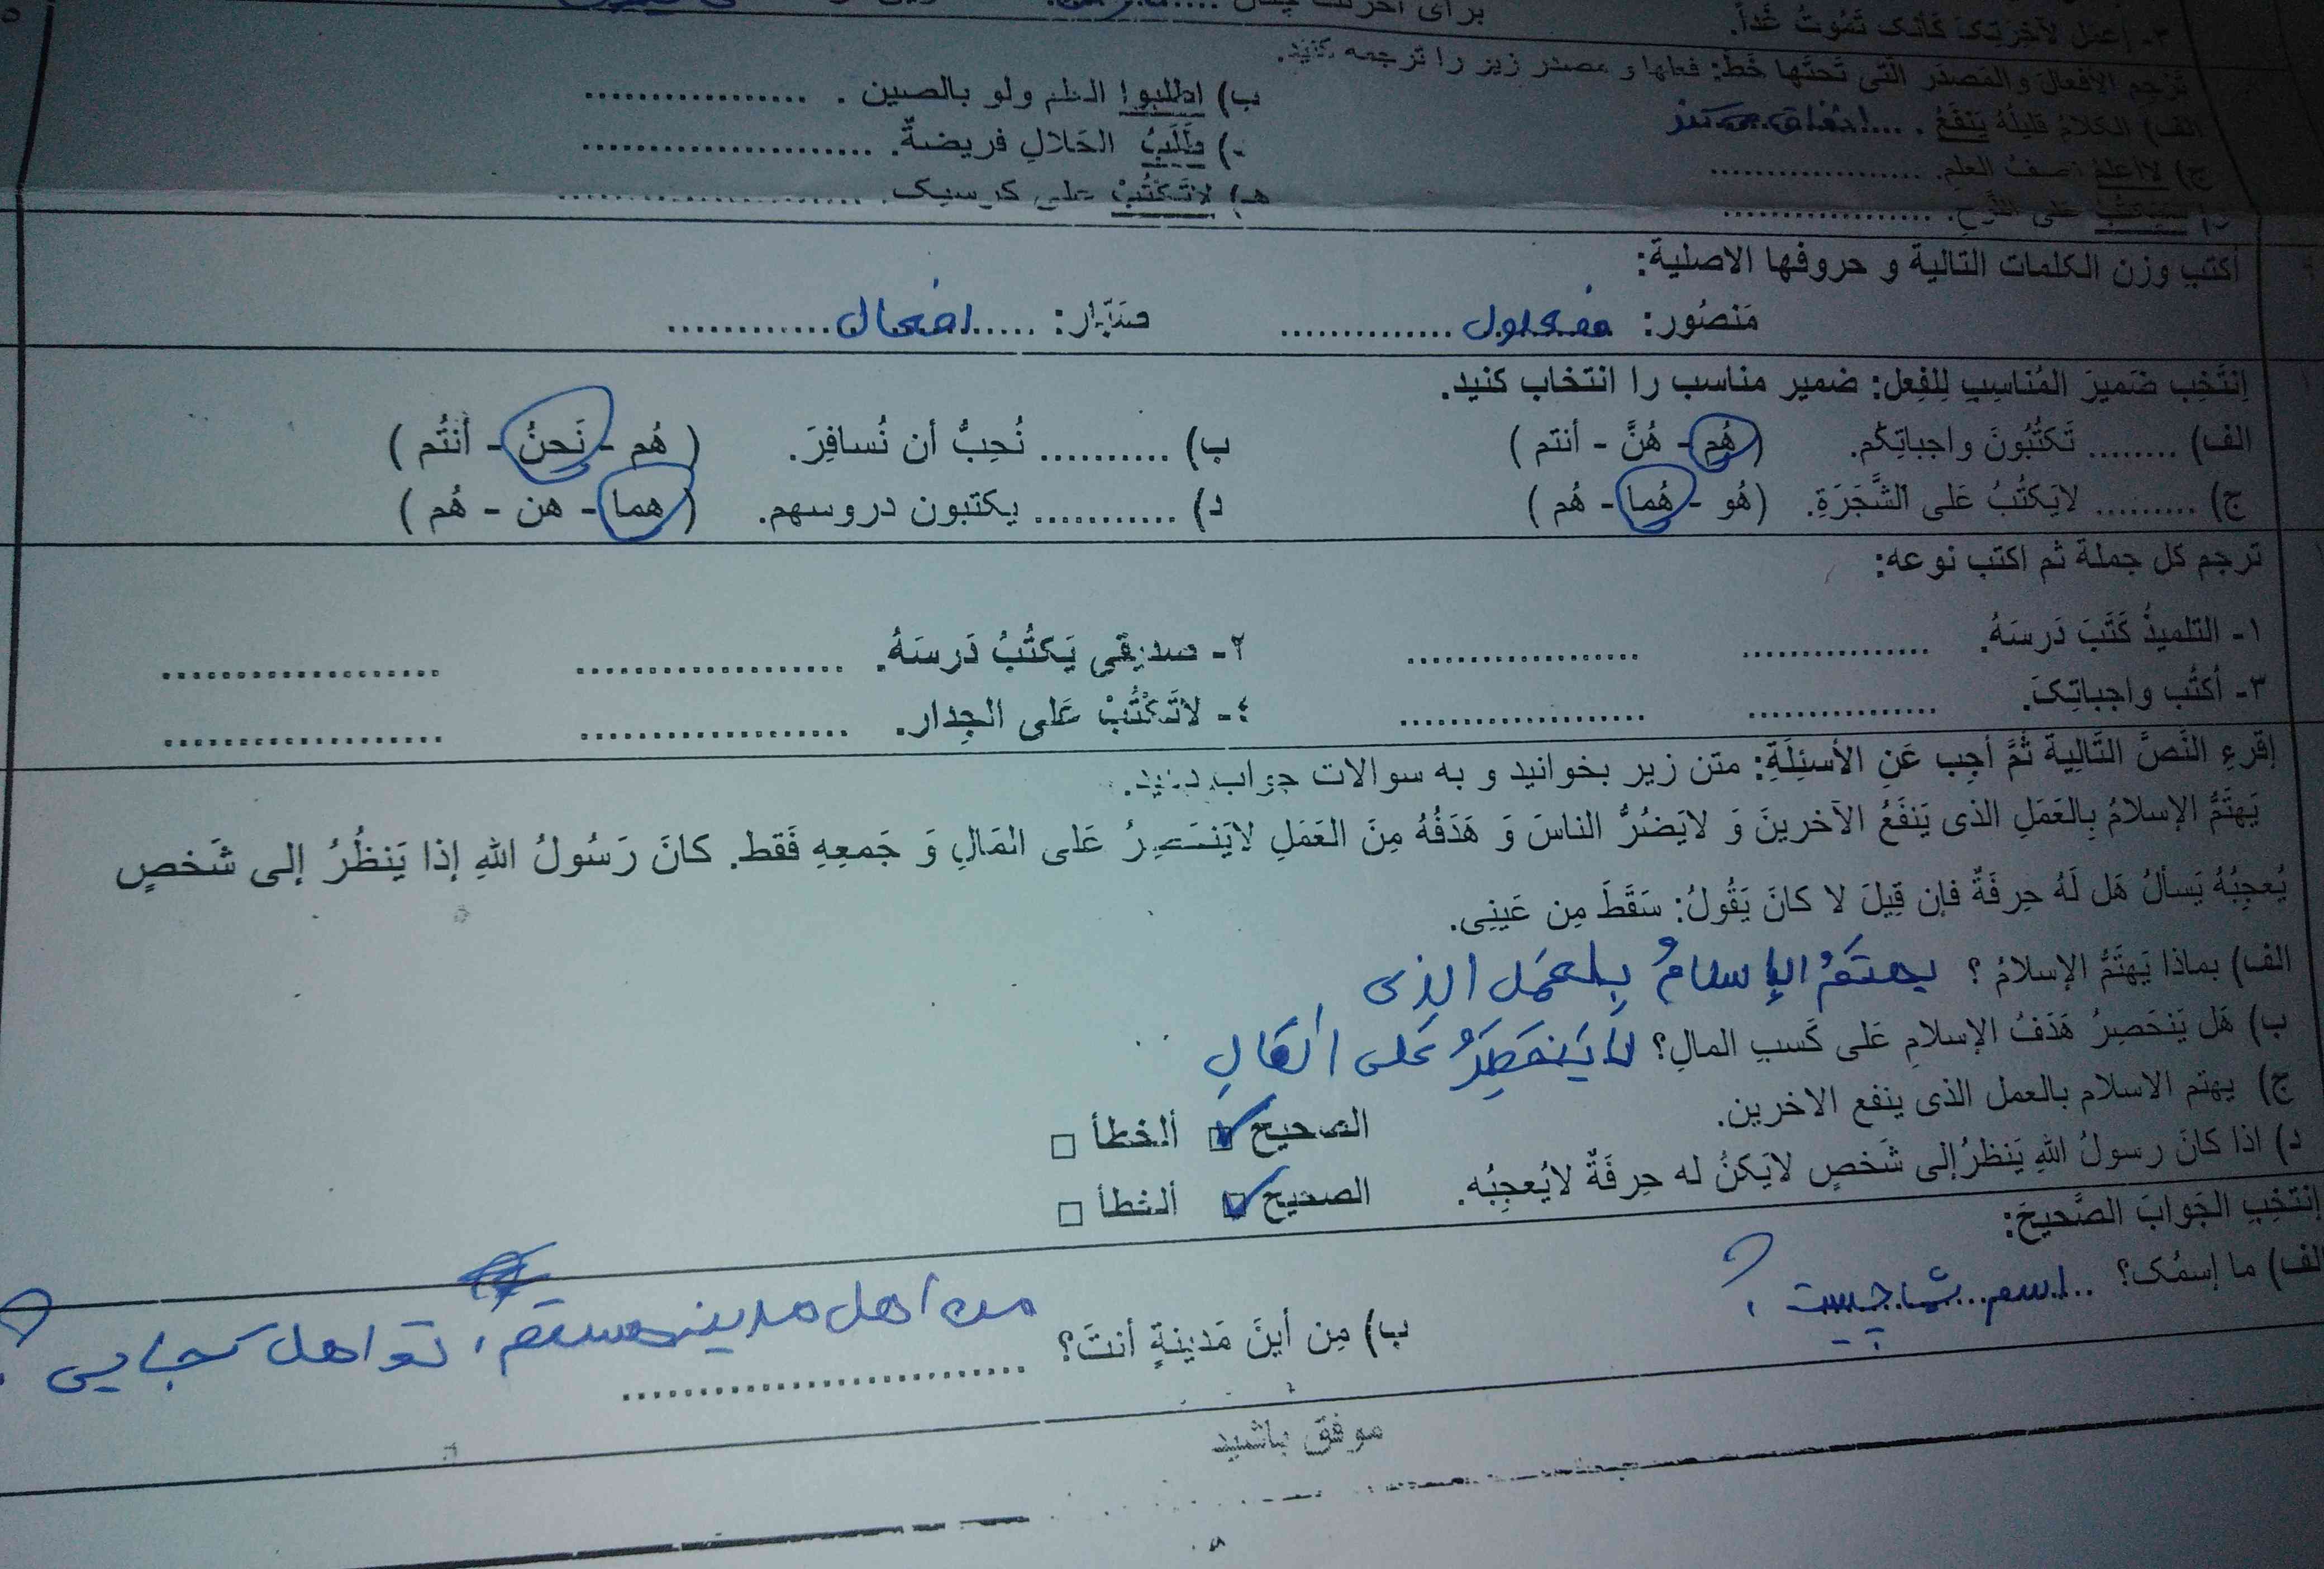 برای آخرتت چنان
۳- إعمَل لآخرتکَ کَأنک تَمُوتُ غَداً.
تَرْجِم الأفعالَ والمَصدَر الّتی تَحتَها خَطّ: فعلها و مصدر زیر را ترجمه کنید.
الف) الکلامُ قلیلُهُ یَنْفَعُ . ب) اطلبوا العلم ولو بالصین .
ج) لاأعلم نصفُ العلم. د) طَلَبُ الحَلالِ فریضةٌ.
علی هـ) لاتَکْتُبْ علی کرسیک.
أکتب وزن الکلمات التالیة و حروفها الاصلیة:
مَنصُور: مفعول صَبّار: افعال
اِنتَخِب ضَمیرَ المُناسِبِ لِلفِعل: ضمیر مناسب را انتخاب کنید.
الف) ........ تَکتُبُونَ واجباتِکُم. ( هُم - هُنَّ - أنتم ) ب) .......... نُحِبُّ أن نُسافِرَ. ( هُم - نَحنُ - أنتُم )
ج) ......... لایَکتُبُ عَلی الشَّجَرَةِ. (هُو - هُما - هُم ) د) ........... یکتبون دروسهم. ( هما - هن - هُم )
ترجم کل جملة ثم اکتب نوعه:
۱- التلمیذُ کَتَبَ دَرسَهُ. ................ .................... ۲- صدیقی یَکتُبُ دَرسَهُ. .................... ....................
۳- أکتُب واجباتِکَ. ................ .................... ٤- لاتَکْتُبْ عَلی الجِدار. .................... ....................
إقرءِ النَصَّ التَّالِیة ثُمَّ أجِب عَنِ الأسئِلَةِ: متن زیر بخوانید و به سوالات جواب دهید.
یَهتَمُّ الإسلامُ بِالعَمَلِ الذی یَنفَعُ الآخرینَ وَ لایَضُرُّ الناسَ وَ هَدَفُهُ مِنَ العَمَلِ لایَنحَصِرُ عَلی المَالِ وَ جَمعِهِ فَقط. کانَ رَسُولُ اللهِ إذا یَنظُرُ إلی شَخصٍ
یُعجِبُهُ یَسألُ هَل لَهُ حِرفَةٌ فإن قِیلَ لا کانَ یَقُولُ: سَقَطَ مِن عَینِی.
الف) بماذا یَهتَمُّ الإسلامُ ؟ یهتَمُ الإسلامُ بِلعمَل الذی
ب) هَل یَنحَصِرُ هَدَفُ الإسلامِ عَلی کَسبِ المالِ؟ لایَنحَصِرُ عَلی المَالِ
ج) یهتم الاسلام بالعمل الذی ینفع الاخرین. الصحیح ☑ ألخطأ □
د) اذا کانَ رسولُ اللهِ یَنظرُإلی شَخصٍ لایَکنُ له حِرفَةٌ لایُعجِبُه. الصحیح ☑ ألخطأ □
إنتَخِبِ الجَوابَ الصَّحیحَ:
الف) ما إسمُک؟ اسم شما چیست؟ ب) مِن أینَ مَدینةٍ أنتَ؟ من اهل مدینه هستم، تو اهل کجایی؟
موفق باشید